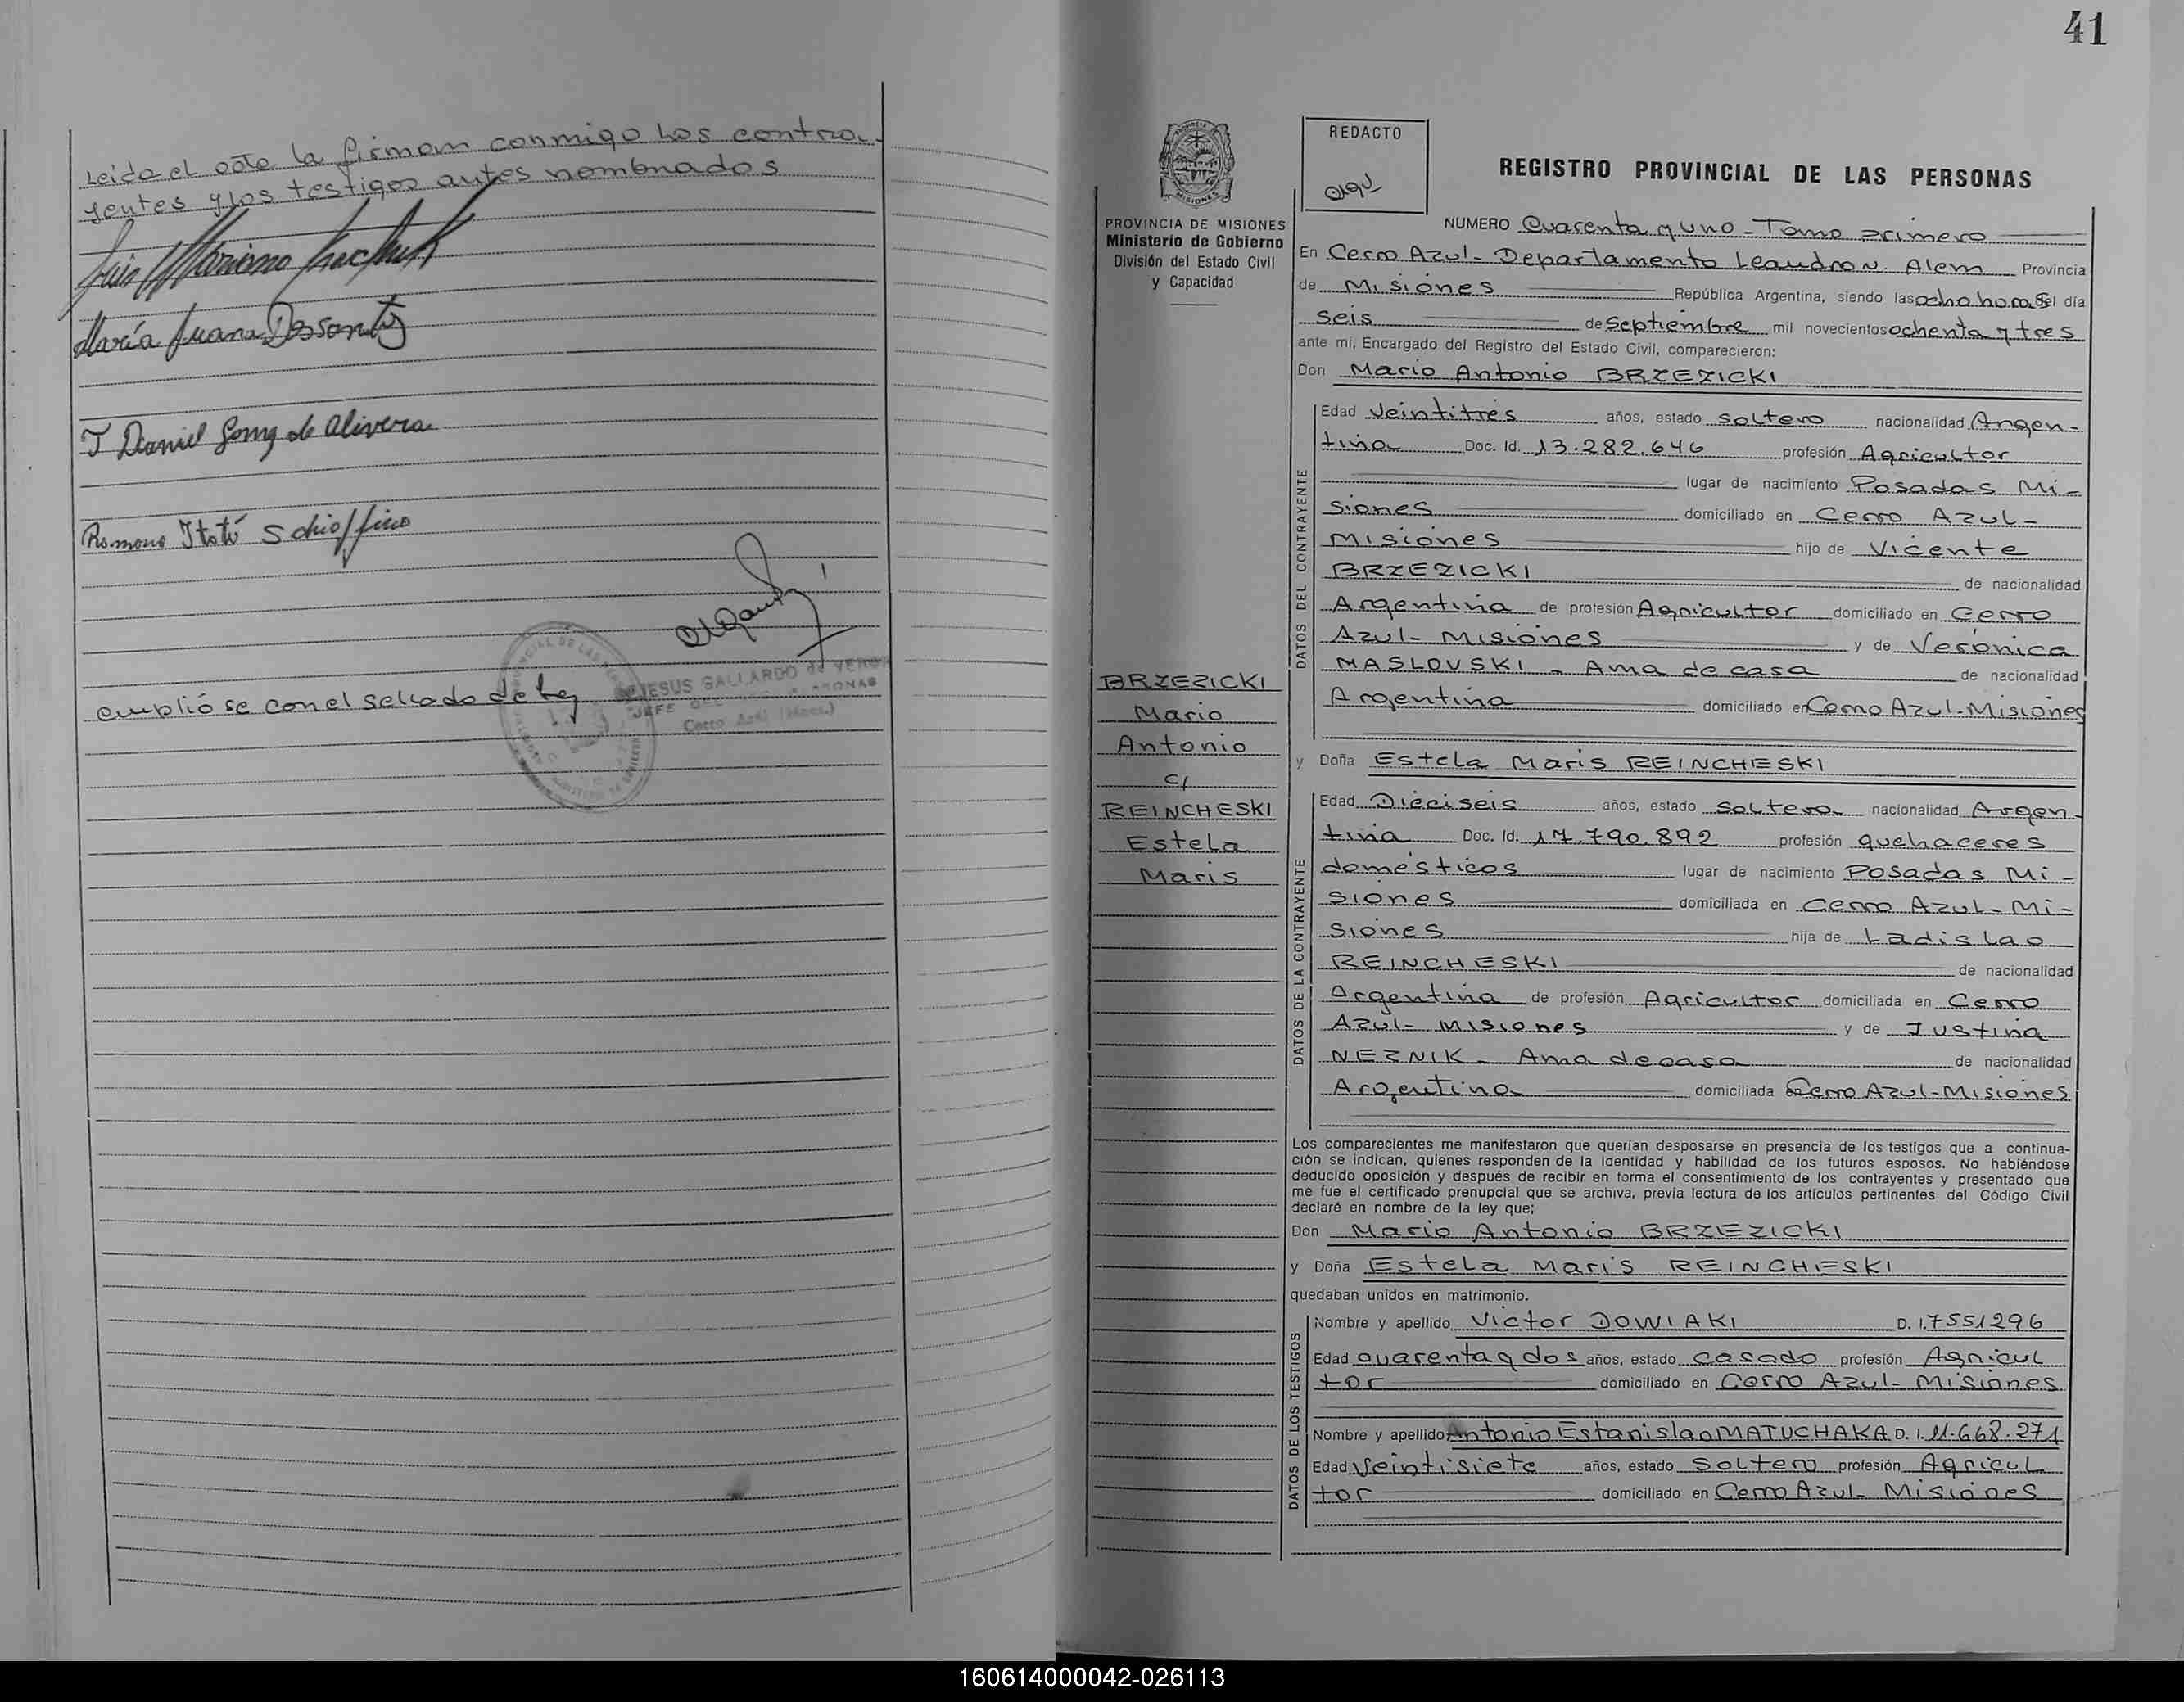 Leida el acta la firman conmigo los contra-
yentes y los testigos antes nombrados
Luis Mariano
María Juana Dossantos
J Daniel Gomez de Olivera
Ramona Itatí Schioffino
cumplióse con el sellado de ley
JESUS GALLARDO de
JEFE DEL
Cerro Azul (Mnes.)
41
PROVINCIA DE MISIONES
Ministerio de Gobierno
División del Estado Civil
y Capacidad
BRZEZICKI
Mario
Antonio
c/
REINCHESKI
Estela
Maris
REDACTO
REGISTRO PROVINCIAL DE LAS PERSONAS
NUMERO Cuarenta y uno - Tomo primero
En Cerro Azul - Departamento Leandro N. Alem Provincia
de Misiones República Argentina, siendo las ocho horas del día
seis de Septiembre mil novecientos ochenta y tres
ante mí, Encargado del Registro del Estado Civil, comparecieron:
Don Mario Antonio BRZEZICKI
DATOS DEL CONTRAYENTE
Edad Veintitres años, estado soltero nacionalidad Argen-
tina Doc. Id. 13.282.646 profesión Agricultor
lugar de nacimiento Posadas Mi-
siones domiciliado en Cerro Azul -
Misiones hijo de Vicente
BRZEZICKI de nacionalidad
Argentina de profesión Agricultor domiciliado en Cerro
Azul - Misiones y de Verónica
MASLOVSKI - Ama de casa de nacionalidad
Argentina domiciliado en Cerro Azul - Misiones
y Doña Estela Maris REINCHESKI
DATOS DE LA CONTRAYENTE
Edad Dieciseis años, estado soltera nacionalidad Argen-
tina Doc. Id. 17.790.892 profesión quehaceres
domésticos lugar de nacimiento Posadas Mi-
siones domiciliada en Cerro Azul - Mi-
siones hija de Ladislao
REINCHESKI de nacionalidad
Argentina de profesión Agricultor domiciliada en Cerro
Azul - Misiones y de Justina
NEZNIK - Ama de casa de nacionalidad
Argentina domiciliada en Cerro Azul - Misiones
Los comparecientes me manifestaron que querían desposarse en presencia de los testigos que a continua-
ción se indican, quienes responden de la identidad y habilidad de los futuros esposos. No habiéndose
deducido oposición y después de recibir en forma el consentimiento de los contrayentes y presentado que
me fue el certificado prenupcial que se archiva, previa lectura de los artículos pertinentes del Código Civil
declaré en nombre de la ley que;
Don Mario Antonio BRZEZICKI
y Doña Estela Maris REINCHESKI
quedaban unidos en matrimonio.
DATOS DE LOS TESTIGOS
Nombre y apellido Victor DOWIAKI D. I. 7551296
Edad cuarenta y dos años, estado casado profesión Agricul
tor domiciliado en Cerro Azul - Misiones
Nombre y apellido Antonio Estanislao MATUCHAKA D. I. 11.668.271
Edad Veintisiete años, estado soltero profesión Agricul
tor domiciliado en Cerro Azul - Misiones
160614000042-026113